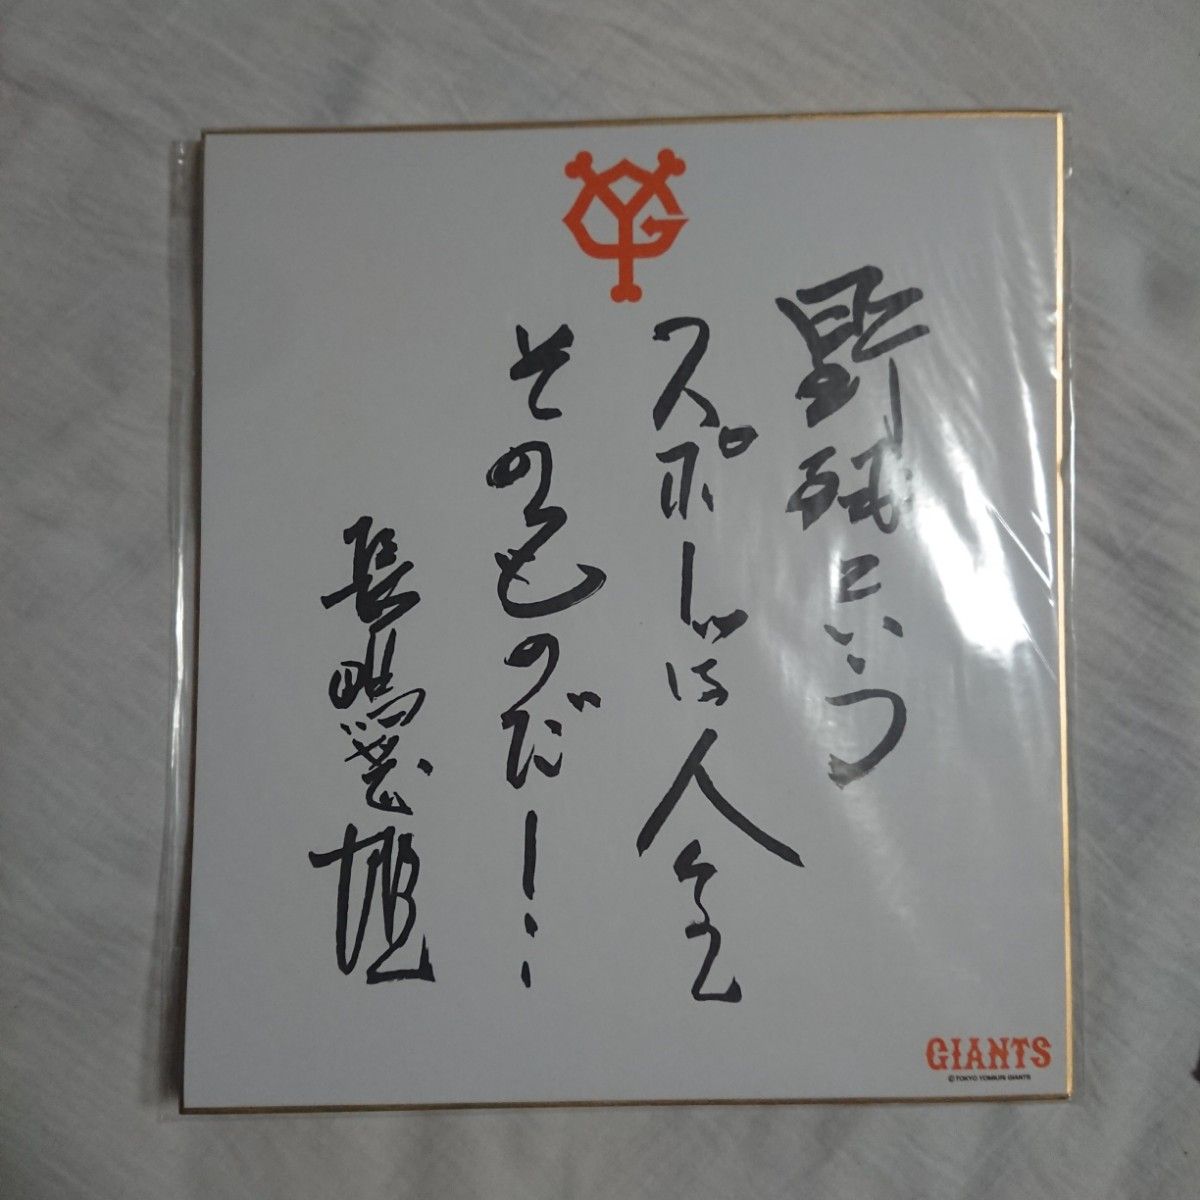 野球という
スポーツは人生
そのものだ!!
長嶋茂雄
YG
GIANTS
© TOKYO YOMIURI GIANTS